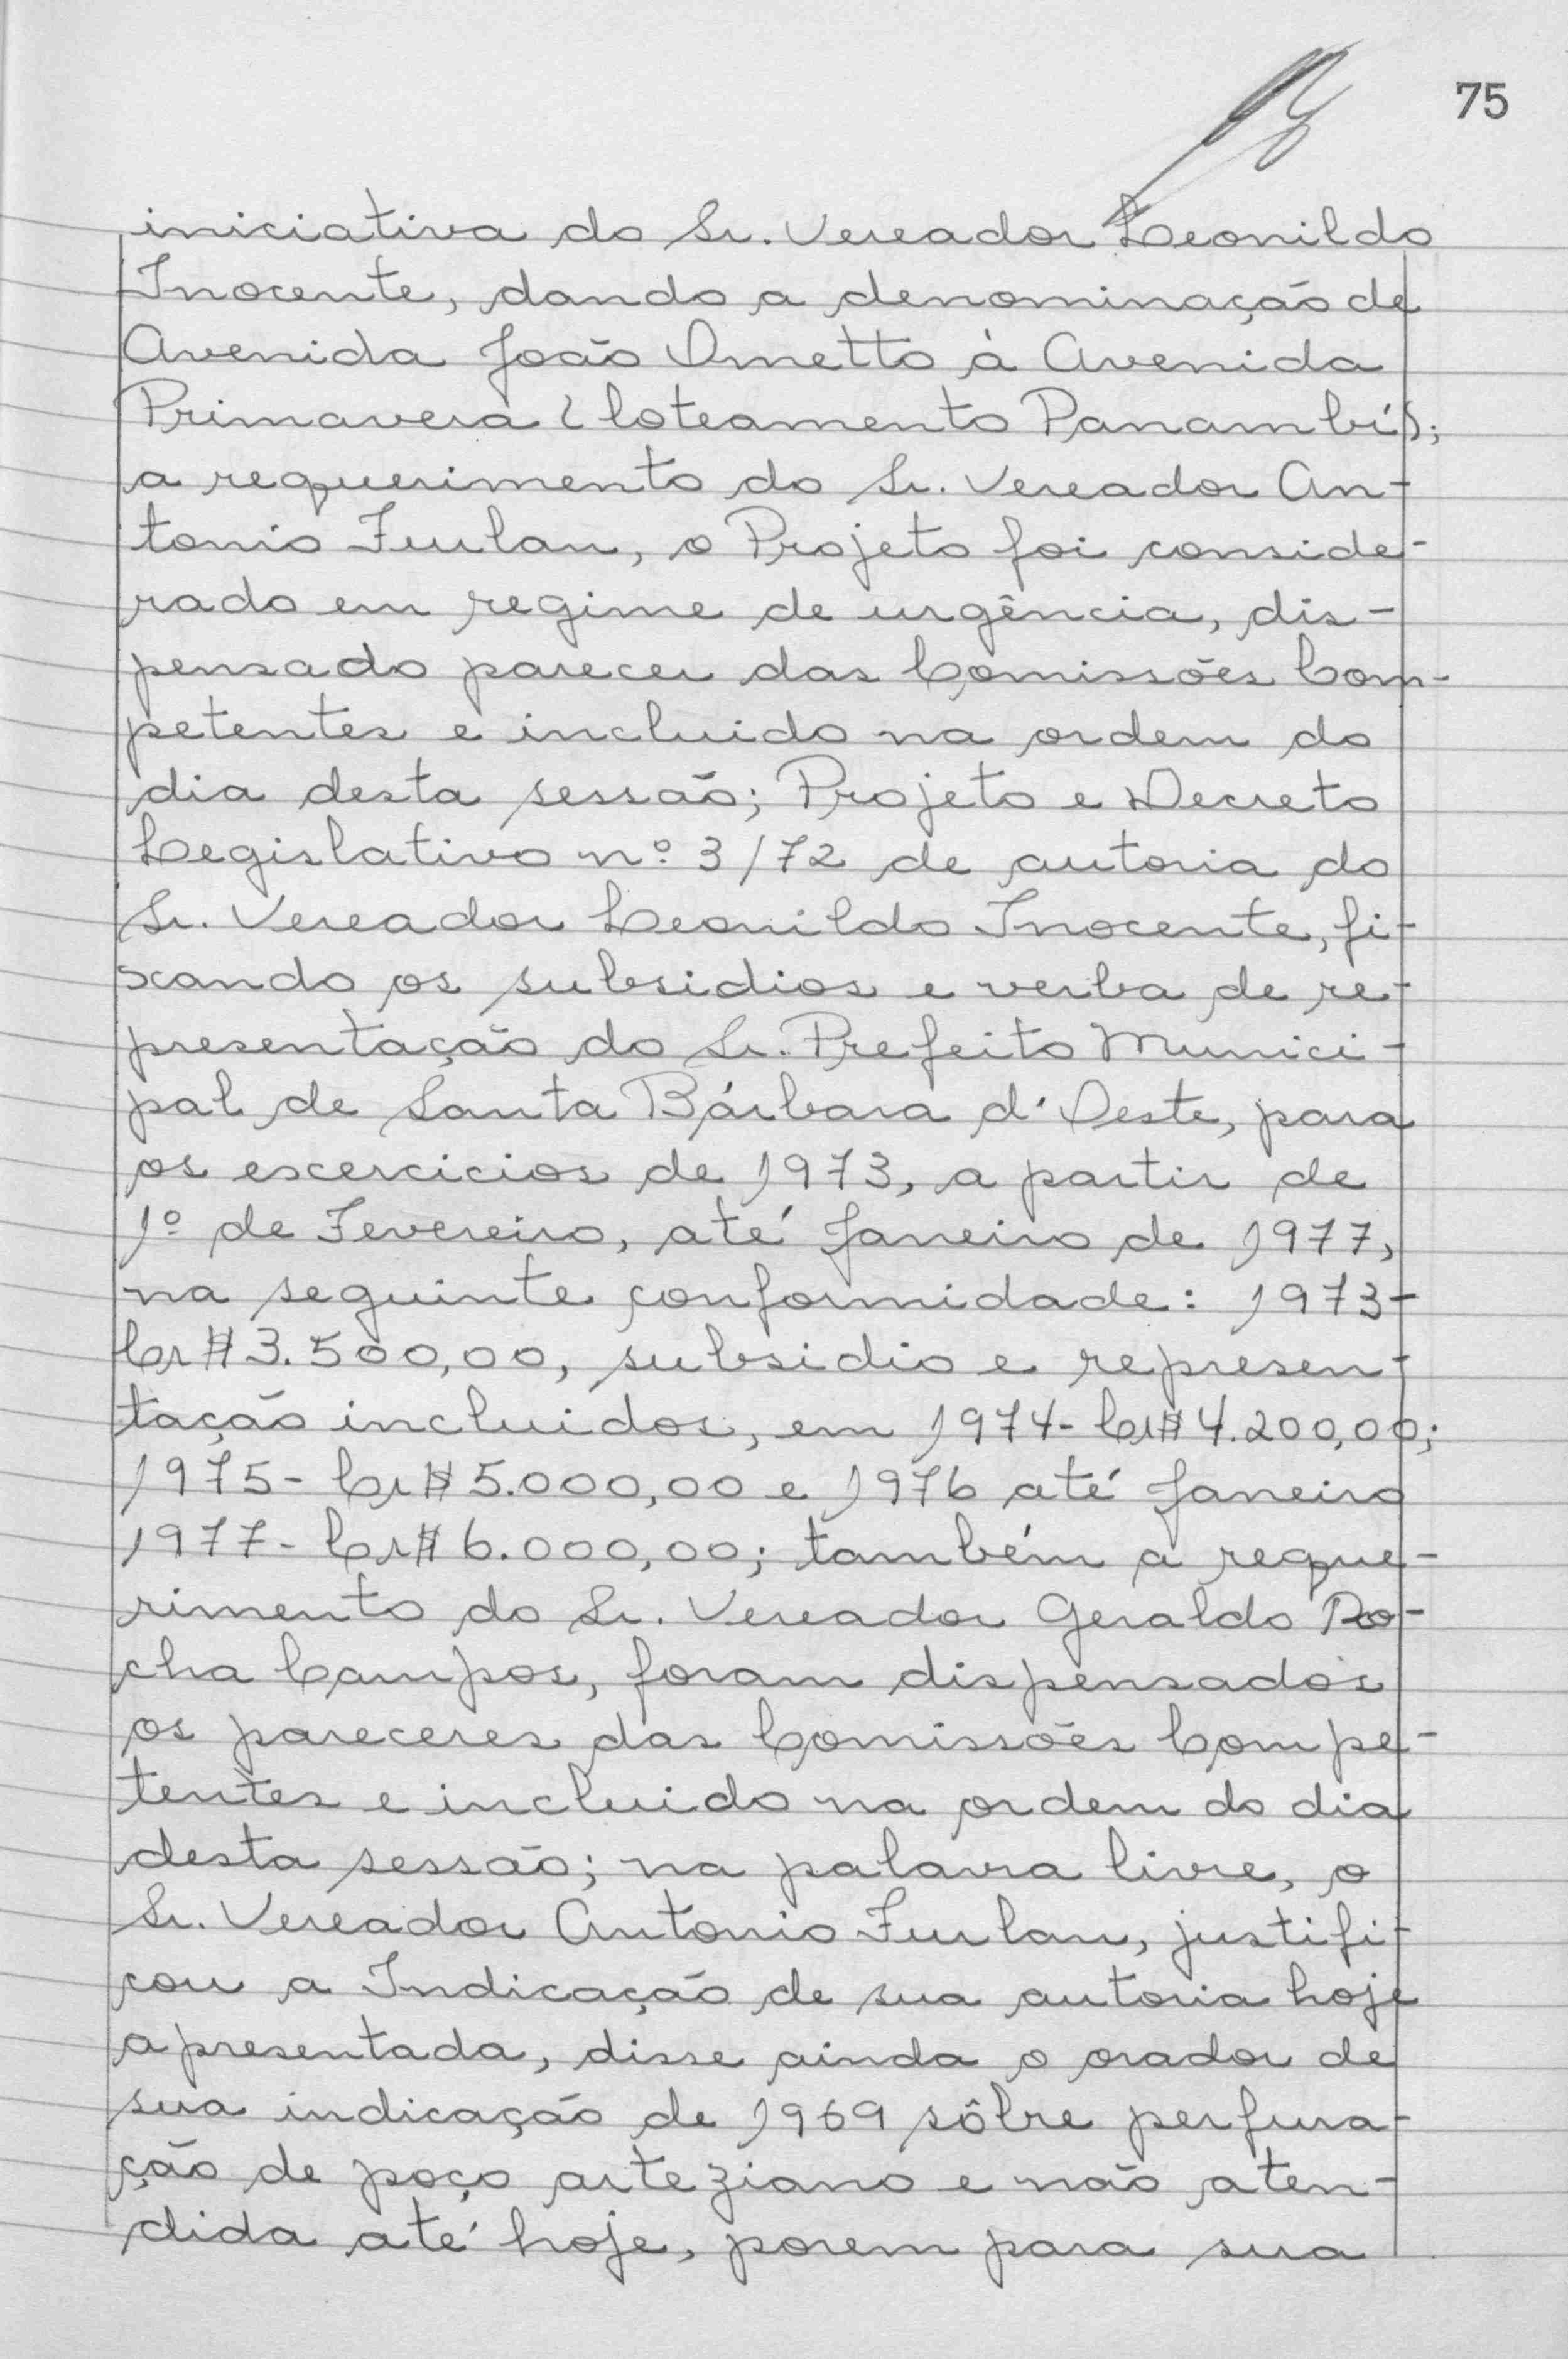 75
iniciativa do Sr. Vereador Leonildo
Inocente, dando a denominação de
Avenida João Ometto à Avenida
Primavera (loteamento Panambí);
a requerimento do Sr. Vereador An-
tonio Furlan, o Projeto foi conside-
rado em regime de urgência, dis-
pensado parecer das Comissões Com-
petentes e incluido na ordem do
dia desta sessão; Projeto e Decreto
Legislativo nº 3/72 de autoria do
Sr. Vereador Leonildo Inocente, fi-
xando os subsidios e verba de re-
presentação do Sr. Prefeito Munici-
pal de Santa Bárbara d'Oeste, para
os excercicios de 1973, a partir de
1º de Fevereiro, até Janeiro de 1977,
na seguinte conformidade: 1973-
Cr$ 3.500,00, subsidio e represen-
tação incluidos, em 1974- Cr$ 4.200,00;
1975- Cr$ 5.000,00 e 1976 até Janeiro
1977- Cr$ 6.000,00; também a reque-
rimento do Sr. Vereador Geraldo Ro-
cha Campos, foram dispensados
os pareceres das Comissões Compe-
tentes e incluido na ordem do dia
desta sessão; na palavra livre, o
Sr. Vereador Antonio Furlan, justifi-
cou a Indicação de sua autoria hoje
apresentada, disse ainda o orador de
sua indicação de 1969 sôbre perfura-
ção de poço arteziano e não aten-
dida até hoje, porem para sua